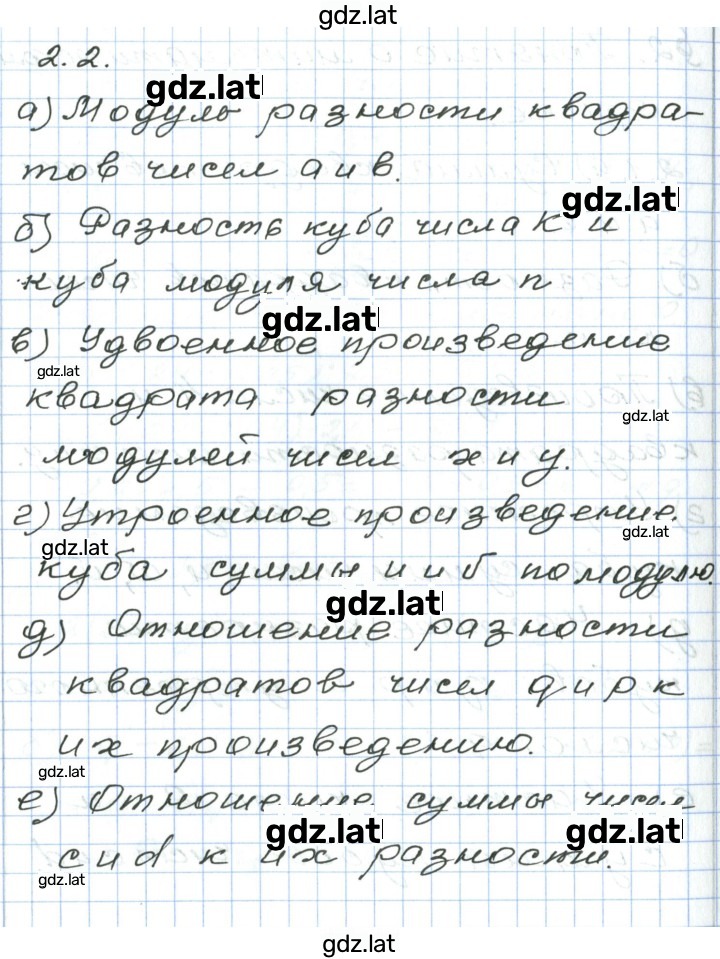 gdz.lat
2.2.
gdz.lat
а) Модуль разности квадра-
тов чисел a и в.
gdz.lat
б) Разность куба числа k и
куба модуля числа n
gdz.lat
в) Удвоенное произведение
gdz.lat
квадрата разности
gdz.lat
модулей чисел x и y.
г) Утроенное произведение.
gdz.lat
gdz.lat
куба суммы и и б по модулю.
gdz.lat
д) Отношение разности
квадратов чисел q и p к
их произведению.
gdz.lat
е) Отношение суммы чисел
gdz.lat
gdz.lat
c и d к их разности.
gdz.lat
gdz.lat